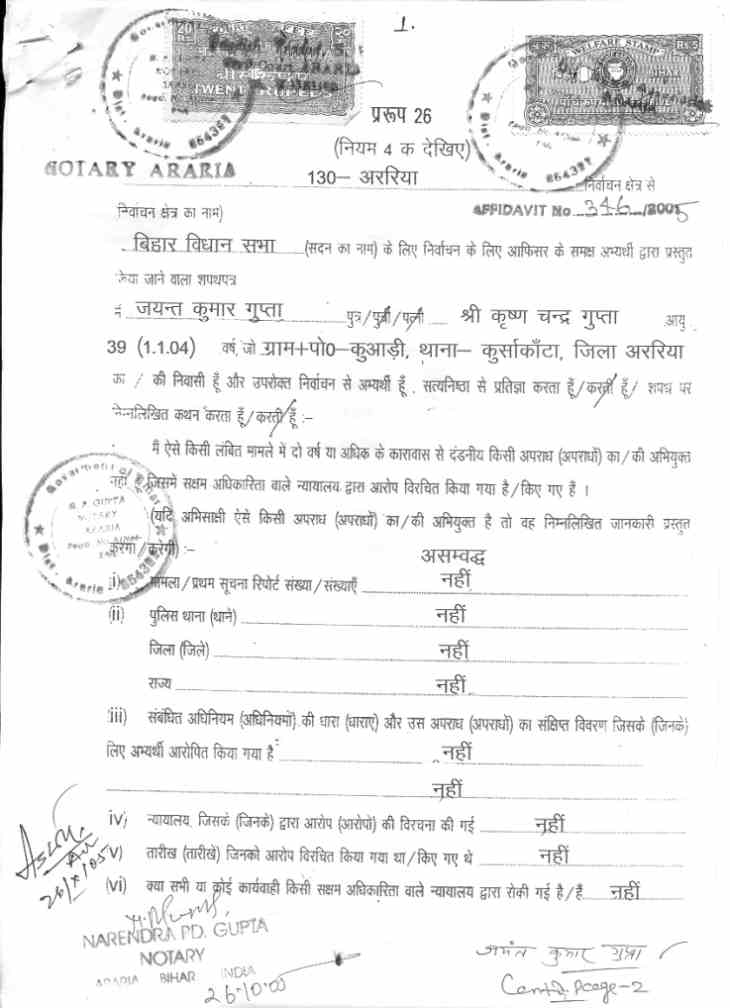 1.
20 Rs
TWENTY RUPEES
WELFARE STAMP
Rs 5
Dist. Araria 854312
Dist. Araria
प्ररूप 26
(नियम 4 क देखिए)
NOTARY ARARIA
130– अररिया
निर्वाचन क्षेत्र से
निर्वाचन क्षेत्र का नाम)
AFFIDAVIT No 346/2005
बिहार विधान सभा (सदन का नाम) के लिए निर्वाचन के लिए आफिसर के समक्ष अभ्यर्थी द्वारा प्रस्तुत
किया जाने वाला शपथपत्र
मैं जयन्त कुमार गुप्ता पुत्र/पुत्री/पत्नी श्री कृष्ण चन्द्र गुप्ता आयु
39 (1.1.04) वर्ष, जो ग्राम+पो0–कुआड़ी, थाना– कुर्साकाँटा, जिला अररिया
का / की निवासी हूँ और उपरोक्त निर्वाचन से अभ्यर्थी हूँ, सत्यनिष्ठा से प्रतिज्ञा करता हूँ/करती हूँ/ शपथ पर
निम्नलिखित कथन करता हूँ/करती हूँ :–
मैं ऐसे किसी लंबित मामले में दो वर्ष या अधिक के कारावास से दंडनीय किसी अपराध (अपराधों) का/की अभियुक्त
नहीं हूँ जिसमें सक्षम अधिकारिता वाले न्यायालय द्वारा आरोप विरचित किया गया है/किए गए हैं ।
(यदि अभिसाक्षी ऐसे किसी अपराध (अपराधों) का/की अभियुक्त है तो वह निम्नलिखित जानकारी प्रस्तुत
करेगा/करेगी) :–
Government of Bihar
GUPTA
NOTARY
ARARIA
Dist. Araria
असम्वद्ध
i) मामला/प्रथम सूचना रिपोर्ट संख्या/संख्याएँ नहीं
(ii) पुलिस थाना (थाने) नहीं
जिला (जिले) नहीं
राज्य नहीं
iii) संबंधित अधिनियम (अधिनियमों) की धारा (धाराए) और उस अपराध (अपराधों) का संक्षिप्त विवरण जिसके (जिनके)
लिए अभ्यर्थी आरोपित किया गया है नहीं
नहीं
iv) न्यायालय, जिसके (जिनके) द्वारा आरोप (आरोपों) की विरचना की गई नहीं
v) तारीख (तारीखें) जिनको आरोप विरचित किया गया था/किए गए थे नहीं
(vi) क्या सभी या कोई कार्यवाही किसी सक्षम अधिकारिता वाले न्यायालय द्वारा रोकी गई है/हैं नहीं
26/X/05
NARENDRA PD. GUPTA
NOTARY
ARARIA BIHAR INDIA
26.10.05
जयंत कुमार गुप्ता
Contd. Page-2